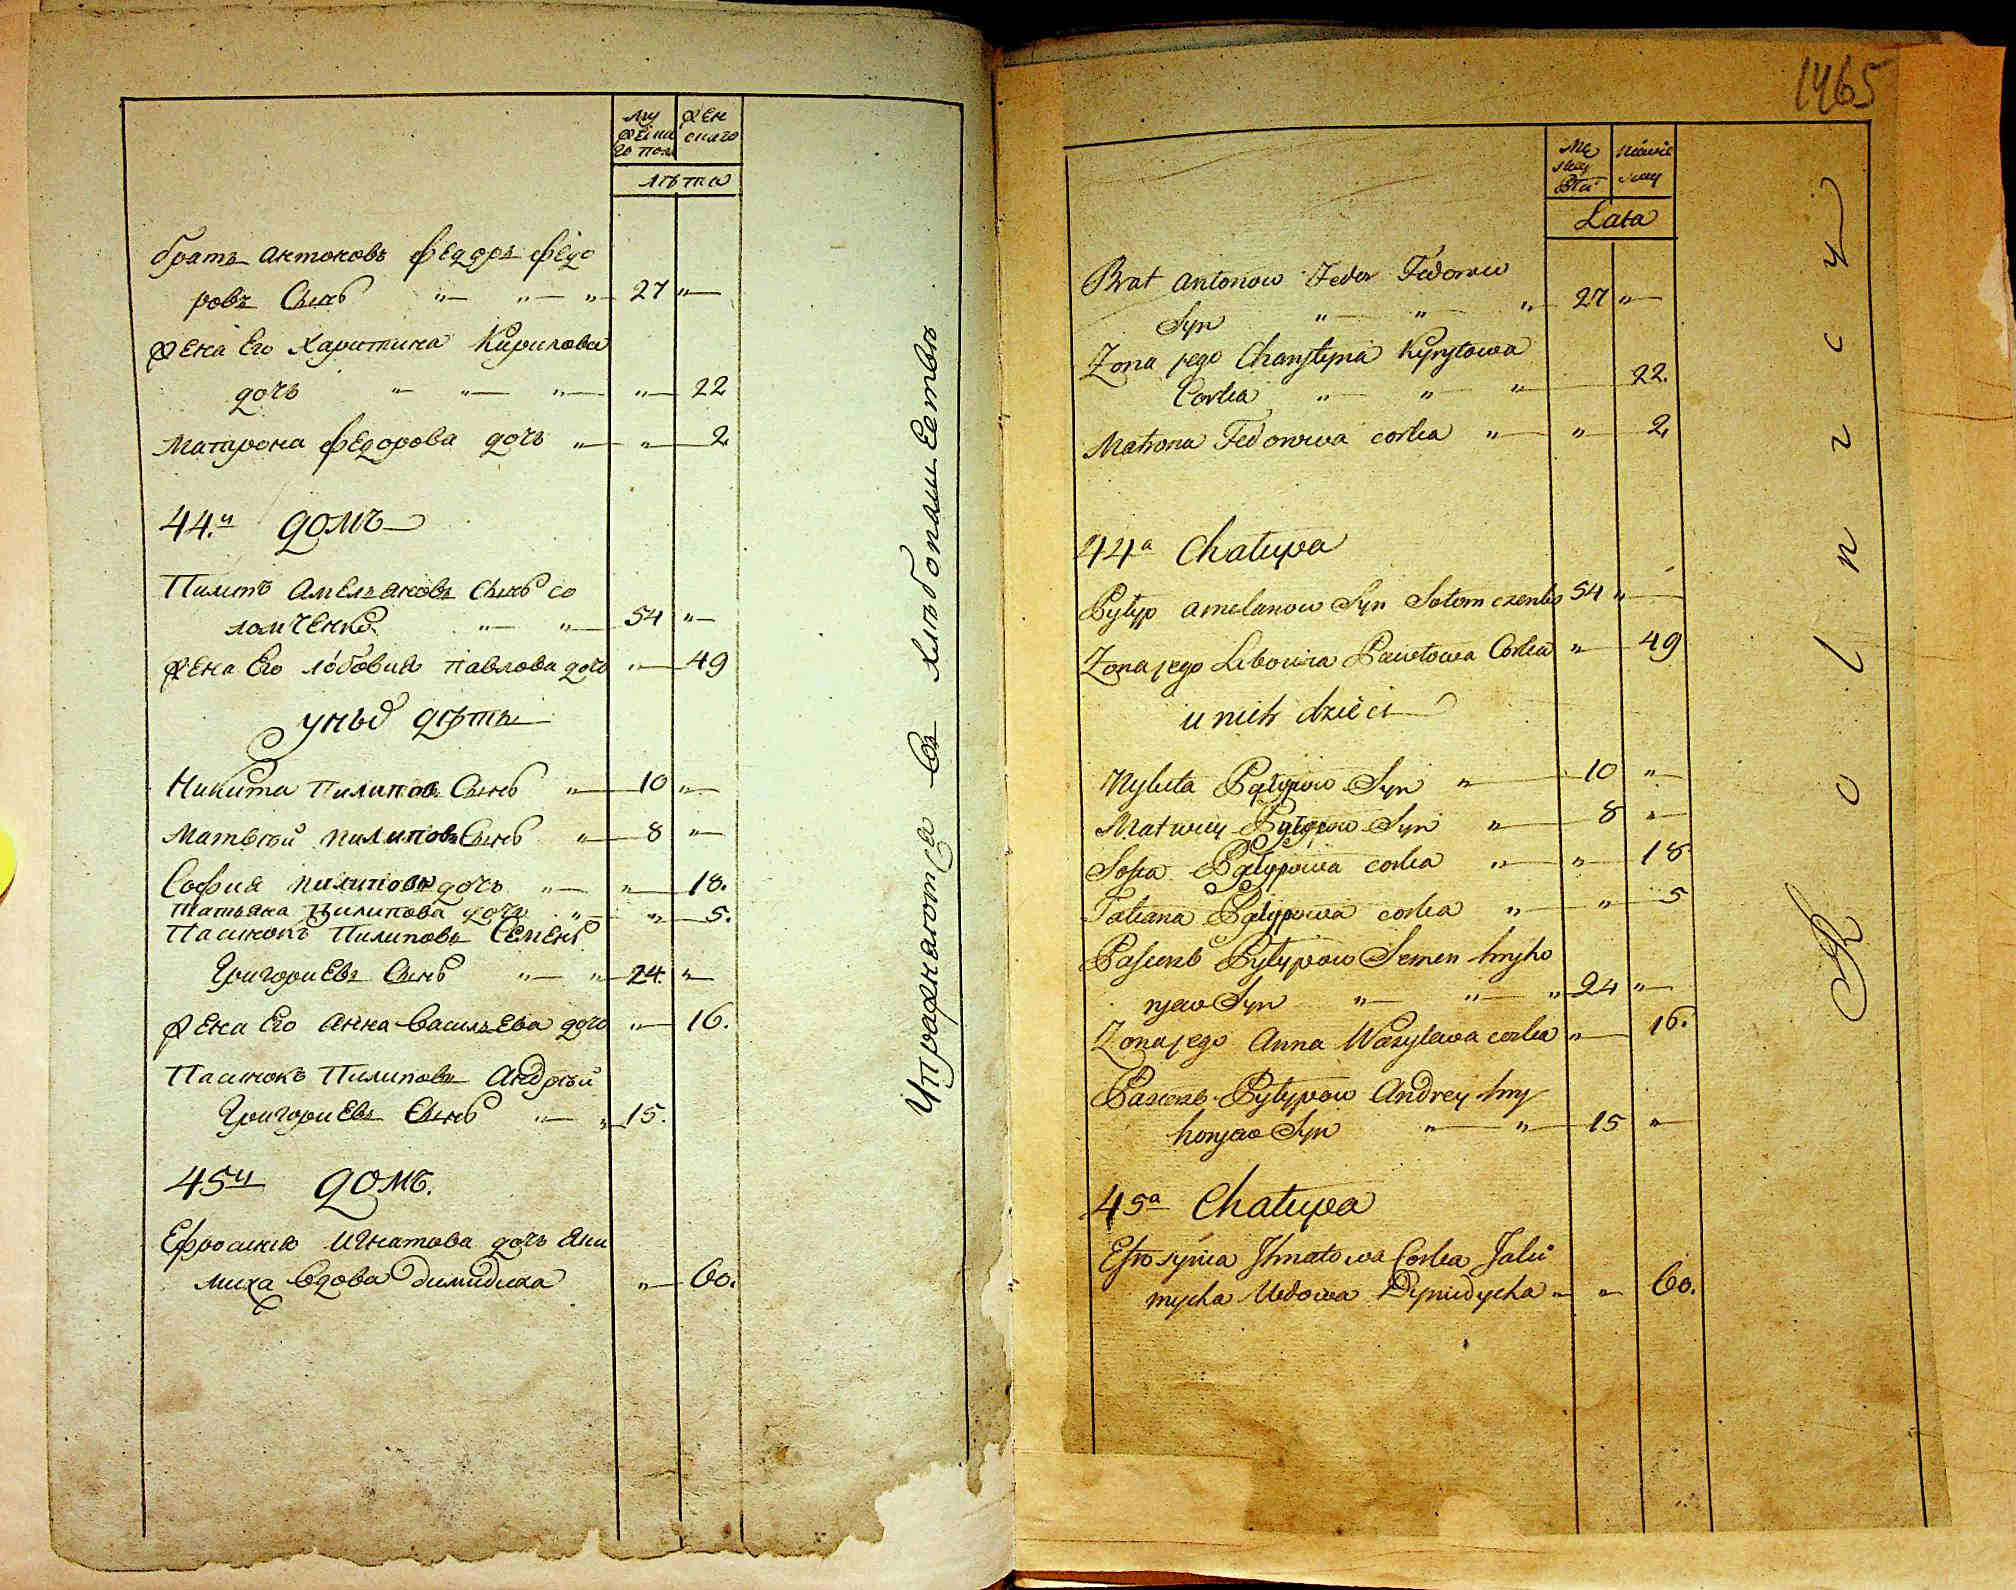 му жен
жеска скаго
го пола
лѣта
братъ антоновъ федоръ федо
ровъ Сынъ " " " 27 "
жена Его Харитина Кирилова
дочь " " " " 22
Матрона федорова дочь " " 2
44.й домъ
Пилипъ амельяновъ сынъ со
ломченко " " 54 "
жена Его любовия павлова дочь " 49
у ных дѣти
Никита Пилипов Сынъ " 10 "
Матвѣй пилиповъ Сынъ " 8 "
София пилипова дочь " " 18.
татьяна Пилипова дочь " " 5.
Пасинокъ Пилиповъ Семенъ
Григориевъ Сынъ " " 24. "
жена Его анна Васильева дочь " 16.
Пасинокъ Пилиповъ андрѣй
Григориевъ Сынъ " " 15.
45й домъ.
Ефросиния Игнатова дочь Яки
миха вдова димидиха " 60.
Упражнаются въ хлѣбопашествѣ
1465
Mę Niewie
skey sciey
Płci
Lata
Brat antonow Fedor Fedorow
Syn " " " 27 "
Zona jego Charytyna Kyryłowa
Corka " " " 22.
Matrona Fedorowa corka " " 2
44a Chałupa
Pyłyp amelanow Syn Sołomczenko 54 "
Zona jego Lubowia Pawłowa Corka " 49
u nich dzieci
Nykita Pyłypow Syn " 10 "
Matwiy Pyłypow Syn " 8 "
Sofia Pyłypowa corka " " 18
Tatiana Pyłypowa corka " " 5
Pasierb Pyłypow Semen hryho
ryew Syn " " " 24 "
Zona jego Anna Wasylewa corka " 16.
Pasierb Pyłypow Andrey hry
horyew Syn " " 15 "
45a Chałupa
Efrosynia Ihnatowa Corka Jaki
mycha Wdowa Dymidycha " " 60.
Rolnicy